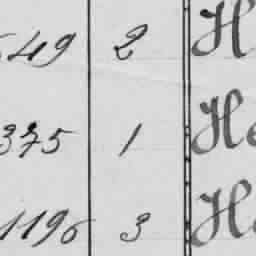 549 2 H
375 1 He
1196 3 He